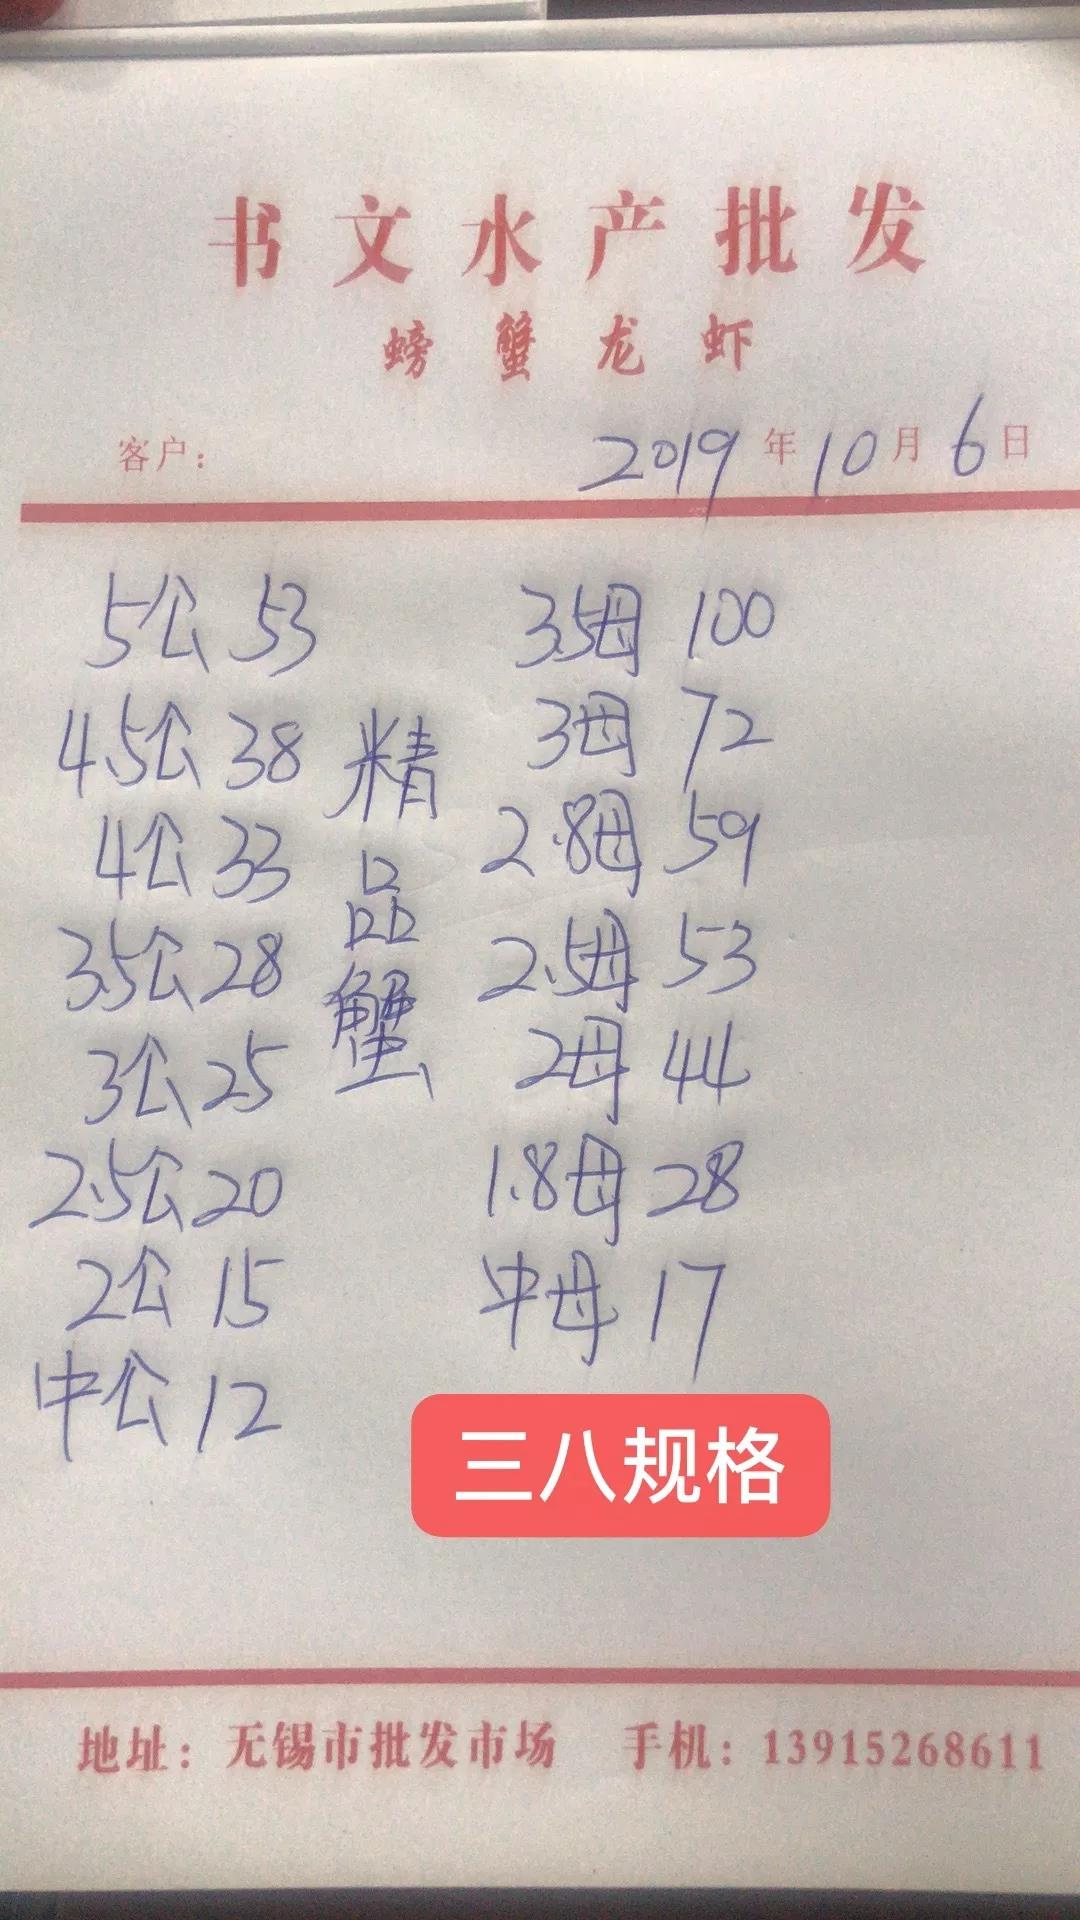 书文水产批发
螃蟹龙虾
客户： 2019年10月6日
5公 53
4.5公 38
4公 33
3.5公 28
3公 25
2.5公 20
2公 15
中公 12
精品蟹
3.5母 100
3母 72
2.8母 59
2.5母 53
2母 44
1.8母 28
中母 17
三八规格
地址：无锡市批发市场 手机：13915268611